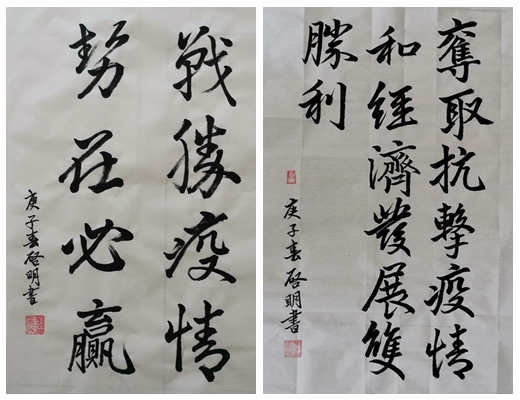 戰勝疫情
勢在必贏
庚子春啓明書
奪取抗擊疫情
和經濟發展雙
勝利
庚子春啓明書